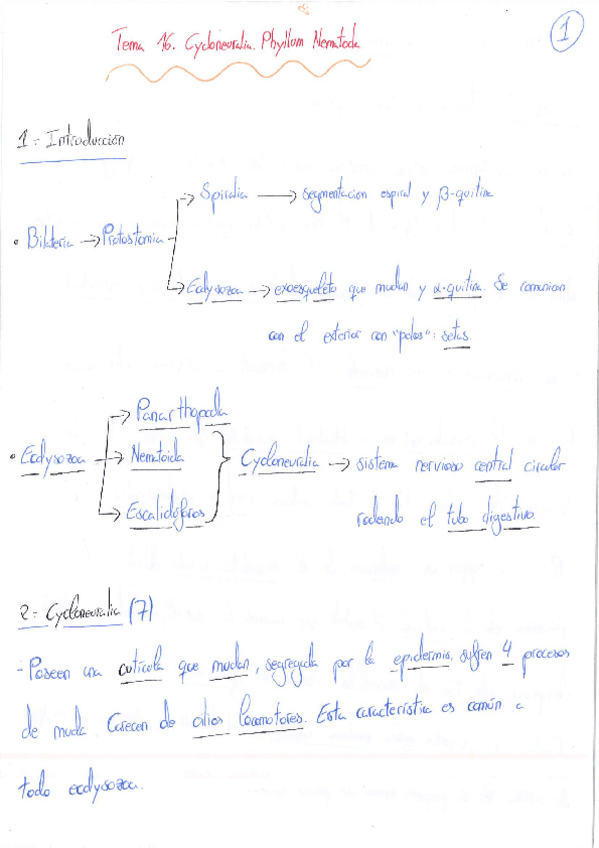 Tema 16. Cycloneuralia. Phyllum Nematoda
1
1 = Introducción
Spiralia → segmentación espiral y β-quitina
• Bilateria → Protostomia
Ecdysozoa → exoesqueleto que mudan y α-quitina. Se comunican
con el exterior con "pelos": setas.
Panarthopoda
• Ecdysozoa → Nematoida } Cycloneuralia → sistema nervioso central circular
Escalidóforos rodeando el tubo digestivo
2 = Cycloneuralia (7)
- Poseen una cutícula que mudan, segregada por la epidermis, sufren 4 procesos
de muda. Carecen de cilios locomotores. Esta característica es común a
todo ecdysozoa.